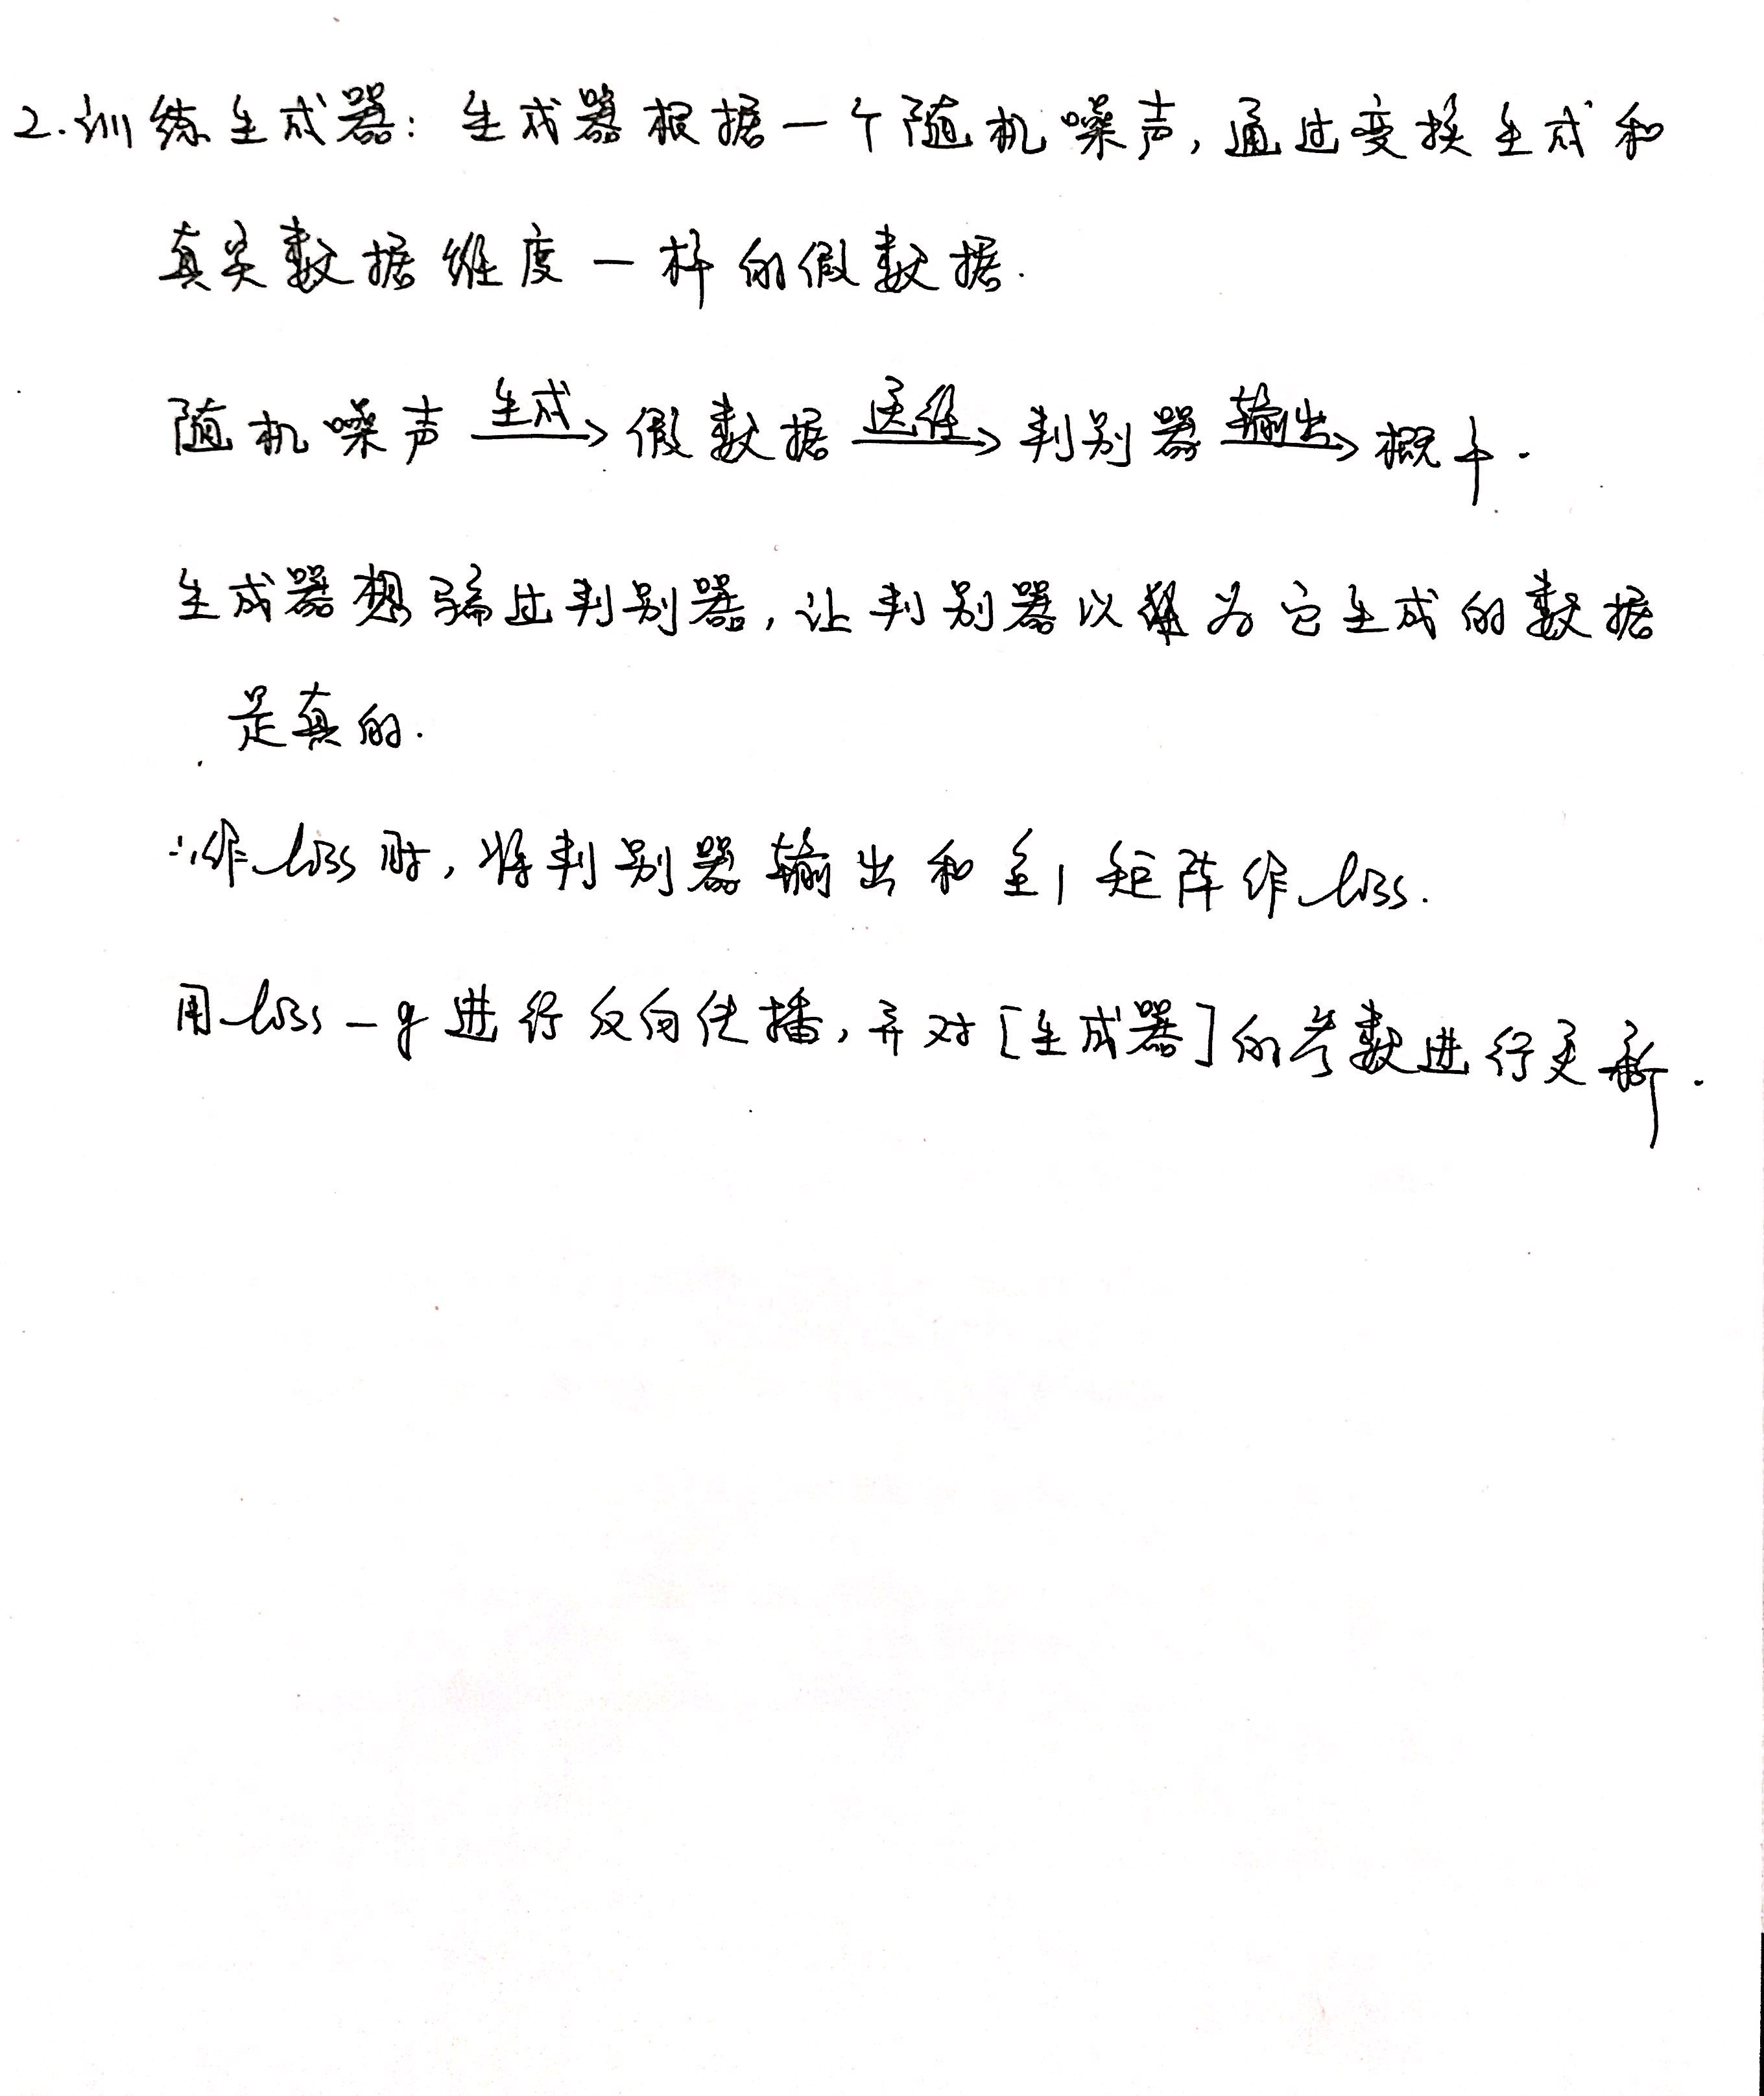 2.训练生成器：生成器根据一个随机噪声，通过变换生成和
真实数据维度一样的假数据.
随机噪声 生成→ 假数据 送往→ 判别器 输出→ 概率.
生成器想骗过判别器，让判别器以为它生成的数据
是真的.
∴作loss时，将判别器输出和全1矩阵作loss.
用loss-g进行反向传播，并对[生成器]的参数进行更新.